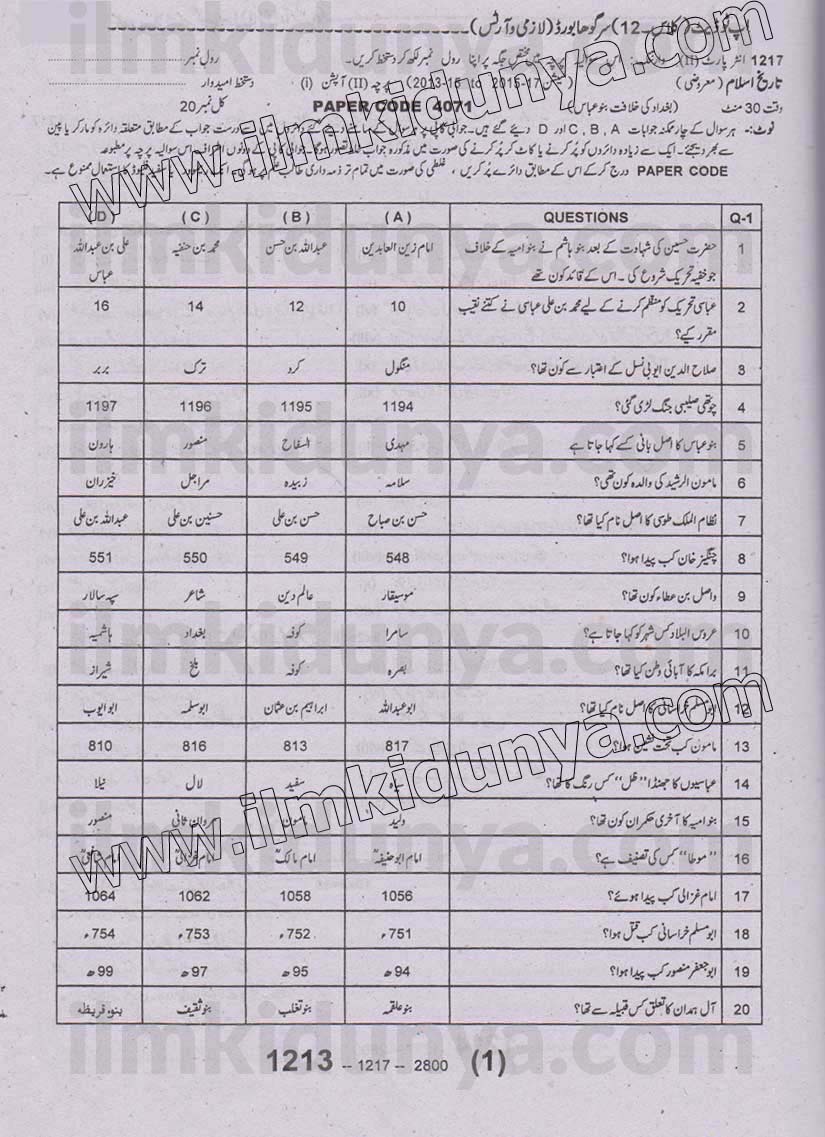 اپ ٹو ڈیٹ (کلاس ـ 12) سرگودھا بورڈ (لازمی و آرٹس)
1217 انٹر پارٹ (II) وارننگ: اس سوالیہ پرچہ میں مختص جگہ پر اپنا رول نمبر لکھ کر دستخط کریں۔ رول نمبر
تاریخ اسلام (معروضی) (سیشن 2015-17 to 2013-15) پرچہ (II) آپشن (i) دستخط امیدوار
وقت 30 منٹ (بغداد کی خلافت بنو عباس) PAPER CODE 4071 کل نمبر 20
نوٹ:۔ ہر سوال کے چار ممکنہ جوابات A , B , C اور D دیئے گئے ہیں۔ جوابی کاپی پر ہر سوال کے سامنے دیئے گئے دائروں میں سے درست جواب کے مطابق متعلقہ دائرہ کو مارکر یا پین
سے بھر دیجئے۔ ایک سے زیادہ دائروں کو پُر کرنے یا کاٹ کر پُر کرنے کی صورت میں مذکورہ جواب غلط تصور ہوگا۔ جوابی کاپی کے دونوں اطراف اس سوالیہ پرچہ پر مطبوعہ
PAPER CODE درج کر کے اس کے مطابق دائرے پُر کریں ، غلطی کی صورت میں تمام تر ذمہ داری طالب علم پر ہوگی۔ کا استعمال ممنوع ہے۔
Q-1 QUESTIONS ( A ) ( B ) ( C ) ( D )
1 حضرت حسین کی شہادت کے بعد بنو ہاشم نے بنو امیہ کے خلاف امام زین العابدین عبداللہ بن حسن محمد بن حنفیہ علی بن عبداللہ
جو خفیہ تحریک شروع کی ۔ اس کے قائد کون تھے عباس
2 عباسی تحریک کو منظم کرنے کے لیے محمد بن علی عباسی نے کتنے نقیب 10 12 14 16
مقرر کیے؟
3 صلاح الدین ایوبی نسل کے اعتبار سے کون تھا؟ منگول کرد ترک بربر
4 چوتھی صلیبی جنگ لڑی گئی؟ 1194 1195 1196 1197
5 بنو عباس کا اصل بانی کسے کہا جاتا ہے مہدی السفاح منصور ہارون
6 مامون الرشید کی والدہ کون تھی؟ سلامہ زبیدہ مراجل خیزران
7 نظام الملک طوسی کا اصل نام کیا تھا؟ حسن بن صباح حسن بن علی حسنین بن علی عبداللہ بن علی
8 چنگیز خان کب پیدا ہوا؟ 548 549 550 551
9 واصل بن عطاء کون تھا؟ موسیقار عالم دین شاعر سپہ سالار
10 عروس البلاد کس شہر کو کہا جاتا ہے؟ سامرا کوفہ بغداد ہاشمیہ
11 برامکہ کا آبائی وطن کیا تھا؟ بصرہ کوفہ بلخ شیراز
12 ابو مسلم خراسانی کا اصل نام کیا تھا؟ ابو عبداللہ ابراہیم بن عثمان ابو سلمہ ابو ایوب
13 مامون کب تخت نشین ہوا؟ 817 813 816 810
14 عباسیوں کا جھنڈا "ظل" کس رنگ کا تھا؟ سیاہ سفید لال نیلا
15 بنو امیہ کا آخری حکمران کون تھا؟ ولید مامون مروان ثانی منصور
16 "موطا" کس کی تصنیف ہے؟ امام ابو حنیفہؒ امام مالکؒ امام غزالیؒ امام شافعیؒ
17 امام غزالی کب پیدا ہوئے؟ 1056 1058 1062 1064
18 ابو مسلم خراسانی کب قتل ہوا؟ 751ء 752ء 753ء 754ء
19 ابو جعفر منصور کب پیدا ہوا؟ 94ھ 95ھ 97ھ 99ھ
20 آل ہمدان کا تعلق کس قبیلہ سے تھا؟ بنو علقمہ بنو تغلب بنو ثقیف بنو قریظہ
1213 -- 1217 -- 2800 (1)
www.ilmkidunya.com
www.ilmkidunya.com
ilmkidunya.com
ilmkidunya.com
ilmkidunya.com
ilmkidunya.com
ilmkidunya.com